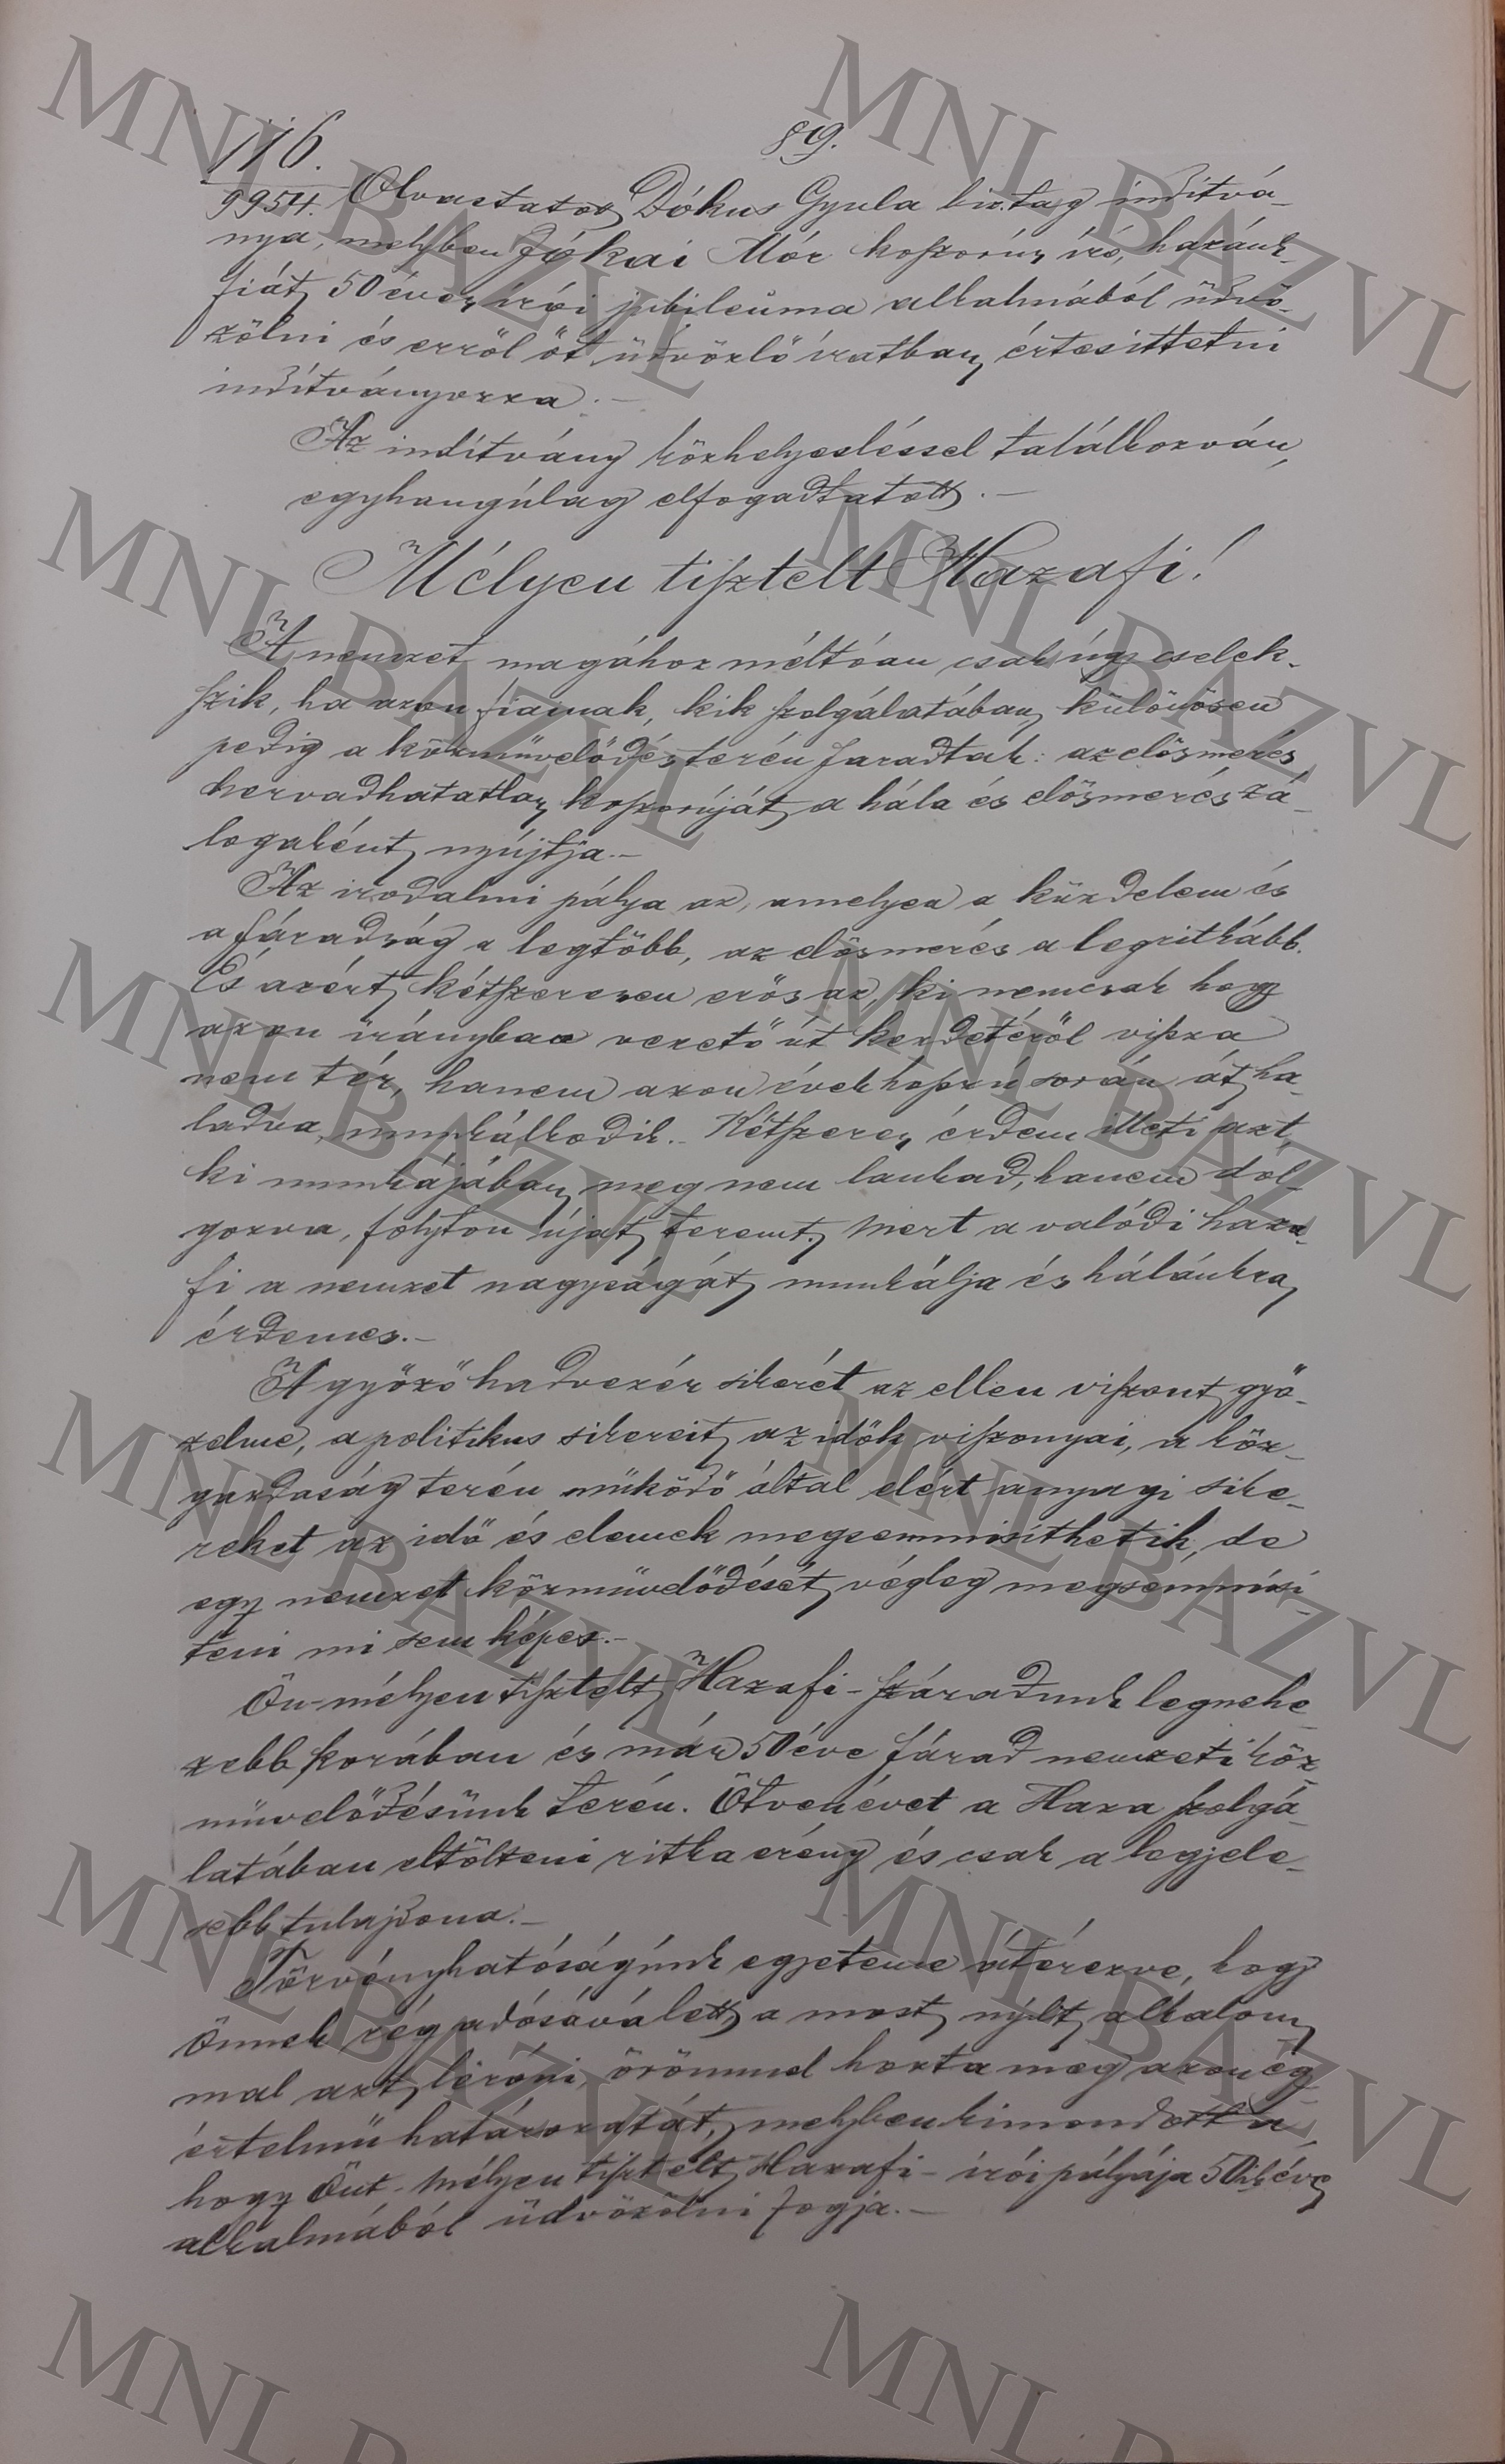 116. 89.
9954. Olvastatott Dókus Gyula biz. tag inditvá-
nya, melyben Jókai Mór koszorús iró, hazánk-
fiát 50 éves írói jubileuma alkalmából üdvö-
zölni és erről őt üdvözlő íratban értesittetni
indítványozza.-
Az indítvány közhelyesléssel találkozván,
egyhangúlag elfogadtatott.-
Mélyen tisztelt Hazafi!
A nemzet magához méltóan csak úgy cselek-
szik, ha azon fiainak, kik szolgálatában, különösen
pedig a közmüvelődés terén faradtak: az elösmerés
hervadhatatlan koszorúját a hála és elösmerés zá-
logaként nyújtja.-
Az irodalmi pálya az, amelyen a küzdelem és
a fáradság a legtöbb, az elösmerés a legritkább.
És azért kétszeresen erős az, ki nemcsak hogy
azon irányban vezető út kezdetéről vissza
nem tér, hanem azon évek hosszú során át ha-
ladva, munkálkodik.- Kétszeres érdem illeti azt,
ki munkájában meg nem lankad, hanem dol-
gozva, folyton újat teremt, mert a valódi haza-
fi a nemzet nagyságát munkálja és hálánkra
érdemes.-
A győző hadvezér sikerét az ellen viszont győ-
zelme, a politikus sikereit az idők viszonyai, a köz-
gazdaság terén müködő által elért anyagi sike-
reket az idő és elemek megsemmisithetik, de
egy nemzet közmüvelődését végleg megsemmisi-
teni mi sem képes.-
Ön - mélyen tisztelt Hazafi - századunk legnehe-
zebb korában és már 50 éve fárad nemzeti köz-
müvelődésünk terén. Ötven évet a Haza szolgá-
latában eltölteni ritka erény és csak a legjele-
sebb tulajdona.-
Törvényhatóságúnk egyeteme átérezve, hogy
Önnek rég adósává lett, a most nyilt alkalom-
mal azt leróni, örömmel hozta meg azon eg-
értelmü határozatát, melyben kimondotta,
hogy Önt - mélyen tisztelt Hazafi - irói pályája 50ik éve
alkalmából üdvözölni fogja.-
MNL BAZVL